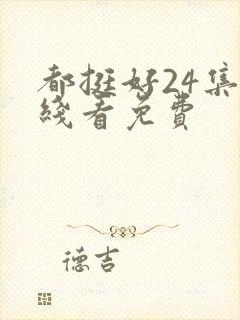 都挺好24集
线看免费
德吉